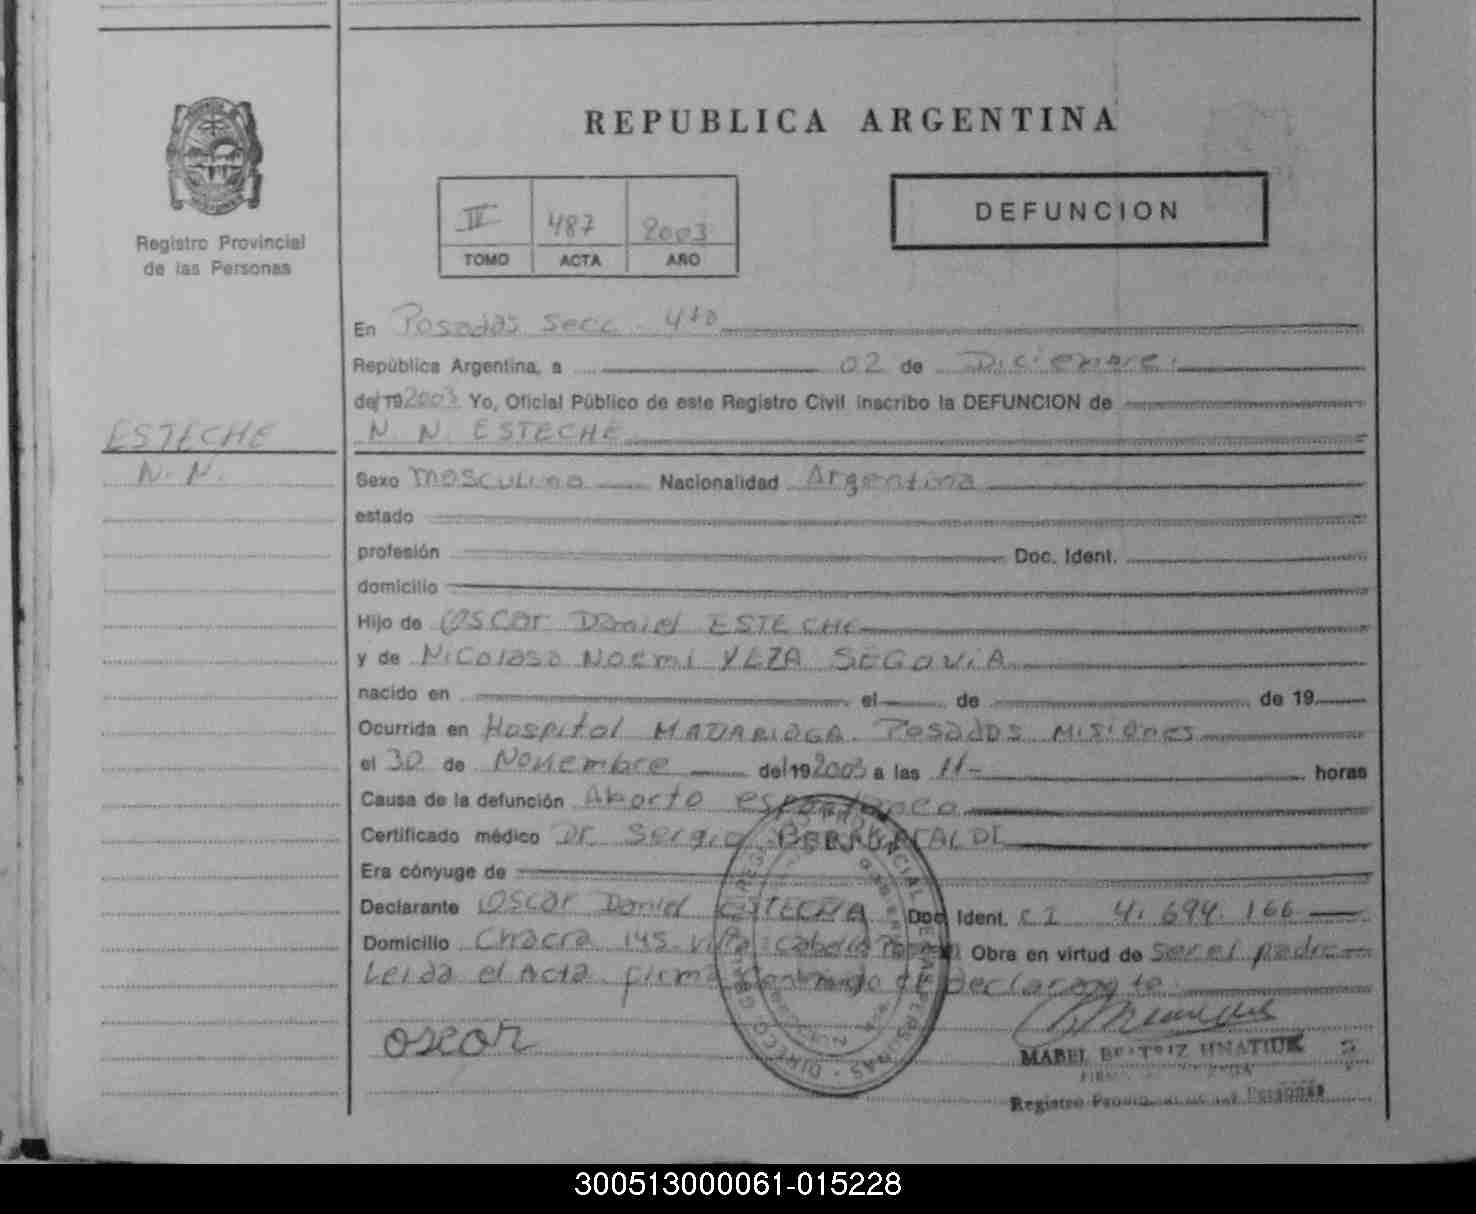 REPUBLICA ARGENTINA
DEFUNCION
Registro Provincial
de las Personas
II 487 2003
TOMO ACTA AÑO
En Posadas Secc. 4ta
República Argentina, a 02 de Diciembre.
del 19 2003 Yo, Oficial Público de este Registro Civil inscribo la DEFUNCION de
N. N. ESTECHE
ESTECHE
N. N.
Sexo masculino Nacionalidad Argentina
estado
profesión Doc. Ident.
domicilio
Hijo de Oscar Daniel ESTECHE
y de Nicolasa Noemi SEGOVIA
nacido en el de de 19
Ocurrida en Hospital MADARIAGA Posadas Misiones
el 30 de Noviembre del 19 2003 a las 11- horas
Causa de la defunción Aborto espontaneo
Certificado médico Dr. Sergio
Era cónyuge de
Declarante Oscar Daniel Doc. Ident. CI 4.694.166
Domicilio Chacra 145 Villa Cabello Obra en virtud de ser el padre
Leida el Acta firma de declarante
oscar
MABEL BEATRIZ HNATIUK
Registro de las Personas
300513000061-015228